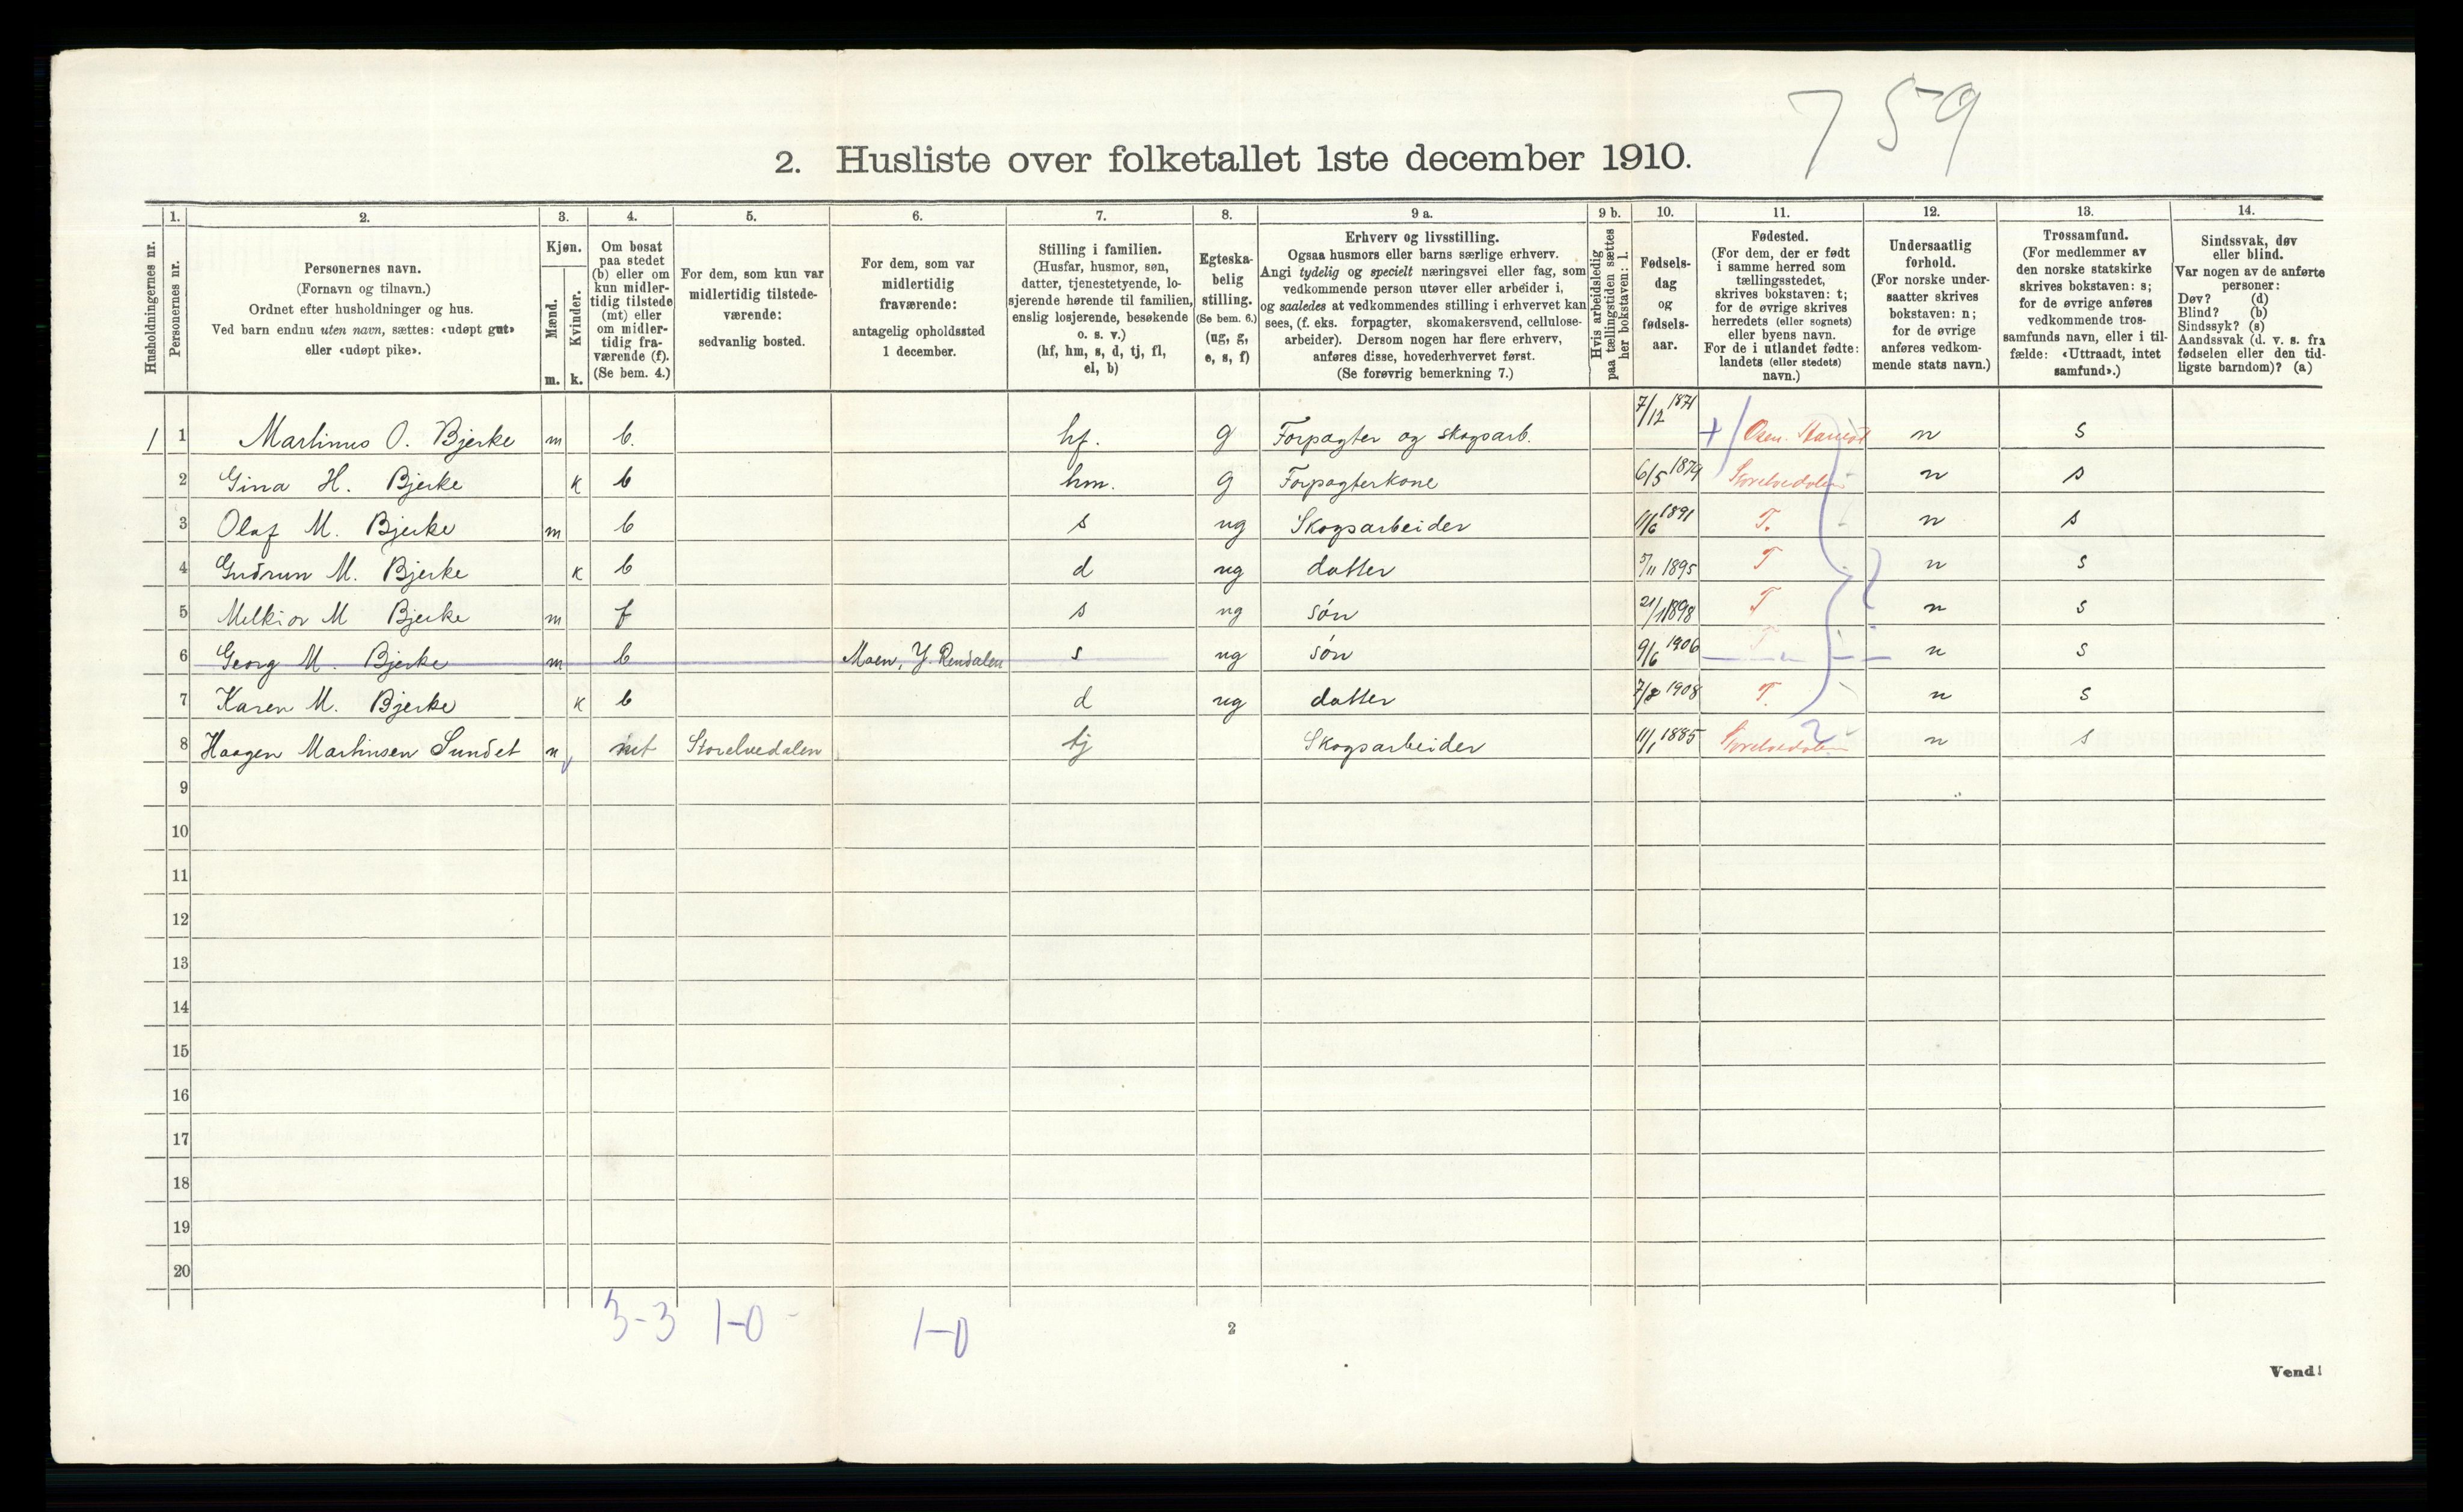 759
2. Husliste over folketallet 1ste december 1910.
Husholdningernes nr.
1.
Personernes nr.
2.
Personernes navn.
(Fornavn og tilnavn.)
Ordnet efter husholdninger og hus.
Ved barn endnu uten navn, sættes: «udøpt gut»
eller «udøpt pike».
3.
Kjøn.
Mænd.
Kvinder.
m. k.
4.
Om bosat
paa stedet
(b) eller om
kun midler-
tidig tilstede
(mt) eller
om midler-
tidig fra-
værende (f).
(Se bem. 4.)
5.
For dem, som kun var
midlertidig tilstede-
værende:
sedvanlig bosted.
6.
For dem, som var
midlertidig
fraværende:
antagelig opholdssted
1 december.
7.
Stilling i familien.
(Husfar, husmor, søn,
datter, tjenestetyende, lo-
sjerende hørende til familien,
enslig losjerende, besøkende
o. s. v.)
(hf, hm, s, d, tj, fl,
el, b)
8.
Egteska-
belig
stilling.
(Se bem. 6.)
(ug, g,
e, s, f)
9 a.
Erhverv og livsstilling.
Ogsaa husmors eller barns særlige erhverv.
Angi tydelig og specielt næringsvei eller fag, som
vedkommende person utøver eller arbeider i,
og saaledes at vedkommendes stilling i erhvervet kan
sees, (f. eks. forpagter, skomakersvend, cellulose-
arbeider). Dersom nogen har flere erhverv,
anføres disse, hovederhvervet først.
(Se forøvrig bemerkning 7.)
9 b.
Hvis arbeidsledig
paa tællingstiden sættes
her bokstaven: l.
10.
Fødsels-
dag
og
fødsels-
aar.
11.
Fødested.
(For dem, der er født
i samme herred som
tællingsstedet,
skrives bokstaven: t;
for de øvrige skrives
herredets (eller sognets)
eller byens navn.
For de i utlandet fødte:
landets (eller stedets)
navn.)
12.
Undersaatlig
forhold.
(For norske under-
saatter skrives
bokstaven: n;
for de øvrige
anføres vedkom-
mende stats navn.)
13.
Trossamfund.
(For medlemmer av
den norske statskirke
skrives bokstaven: s;
for de øvrige anføres
vedkommende tros-
samfunds navn, eller i til-
fælde: «Uttraadt, intet
samfund».)
14.
Sindssvak, døv
eller blind.
Var nogen av de anførte
personer:
Døv? (d)
Blind? (b)
Sindssyk? (s)
Aandssvak (d. v. s. fra
fødselen eller den tid-
ligste barndom)? (a)
1 1 Martinus O. Bjerke m b. hf. g Forpagter og skogsarb. 7/12 1871 + Osen n s
2 Gina H. Bjerke k b hm. g Forpagterkone 6/5 1879 Storelvedalen n s
3 Olaf M. Bjerke m b s ug Skogsarbeider 11/6 1891 T. n s
4 Gudrun M. Bjerke k b d ug datter 5/11 1895 T n s
5 Melkior M Bjerke m f s ug søn 21/1 1898 T n s
6 Georg M. Bjerke m b Moen, Y. Rendalen s ug søn 9/6 1906 T n s
7 Karen M. Bjerke k b d ug datter 7/8 1908 T. n s
8 Haagen Martinsen Sundet m mt Storelvedalen tj Skogsarbeider 11/1 1885 Storelvedalen n s
9
10
11
12
13
14
15
16
17
18
19
20
3-3 1-0 1-0
2
Vend!